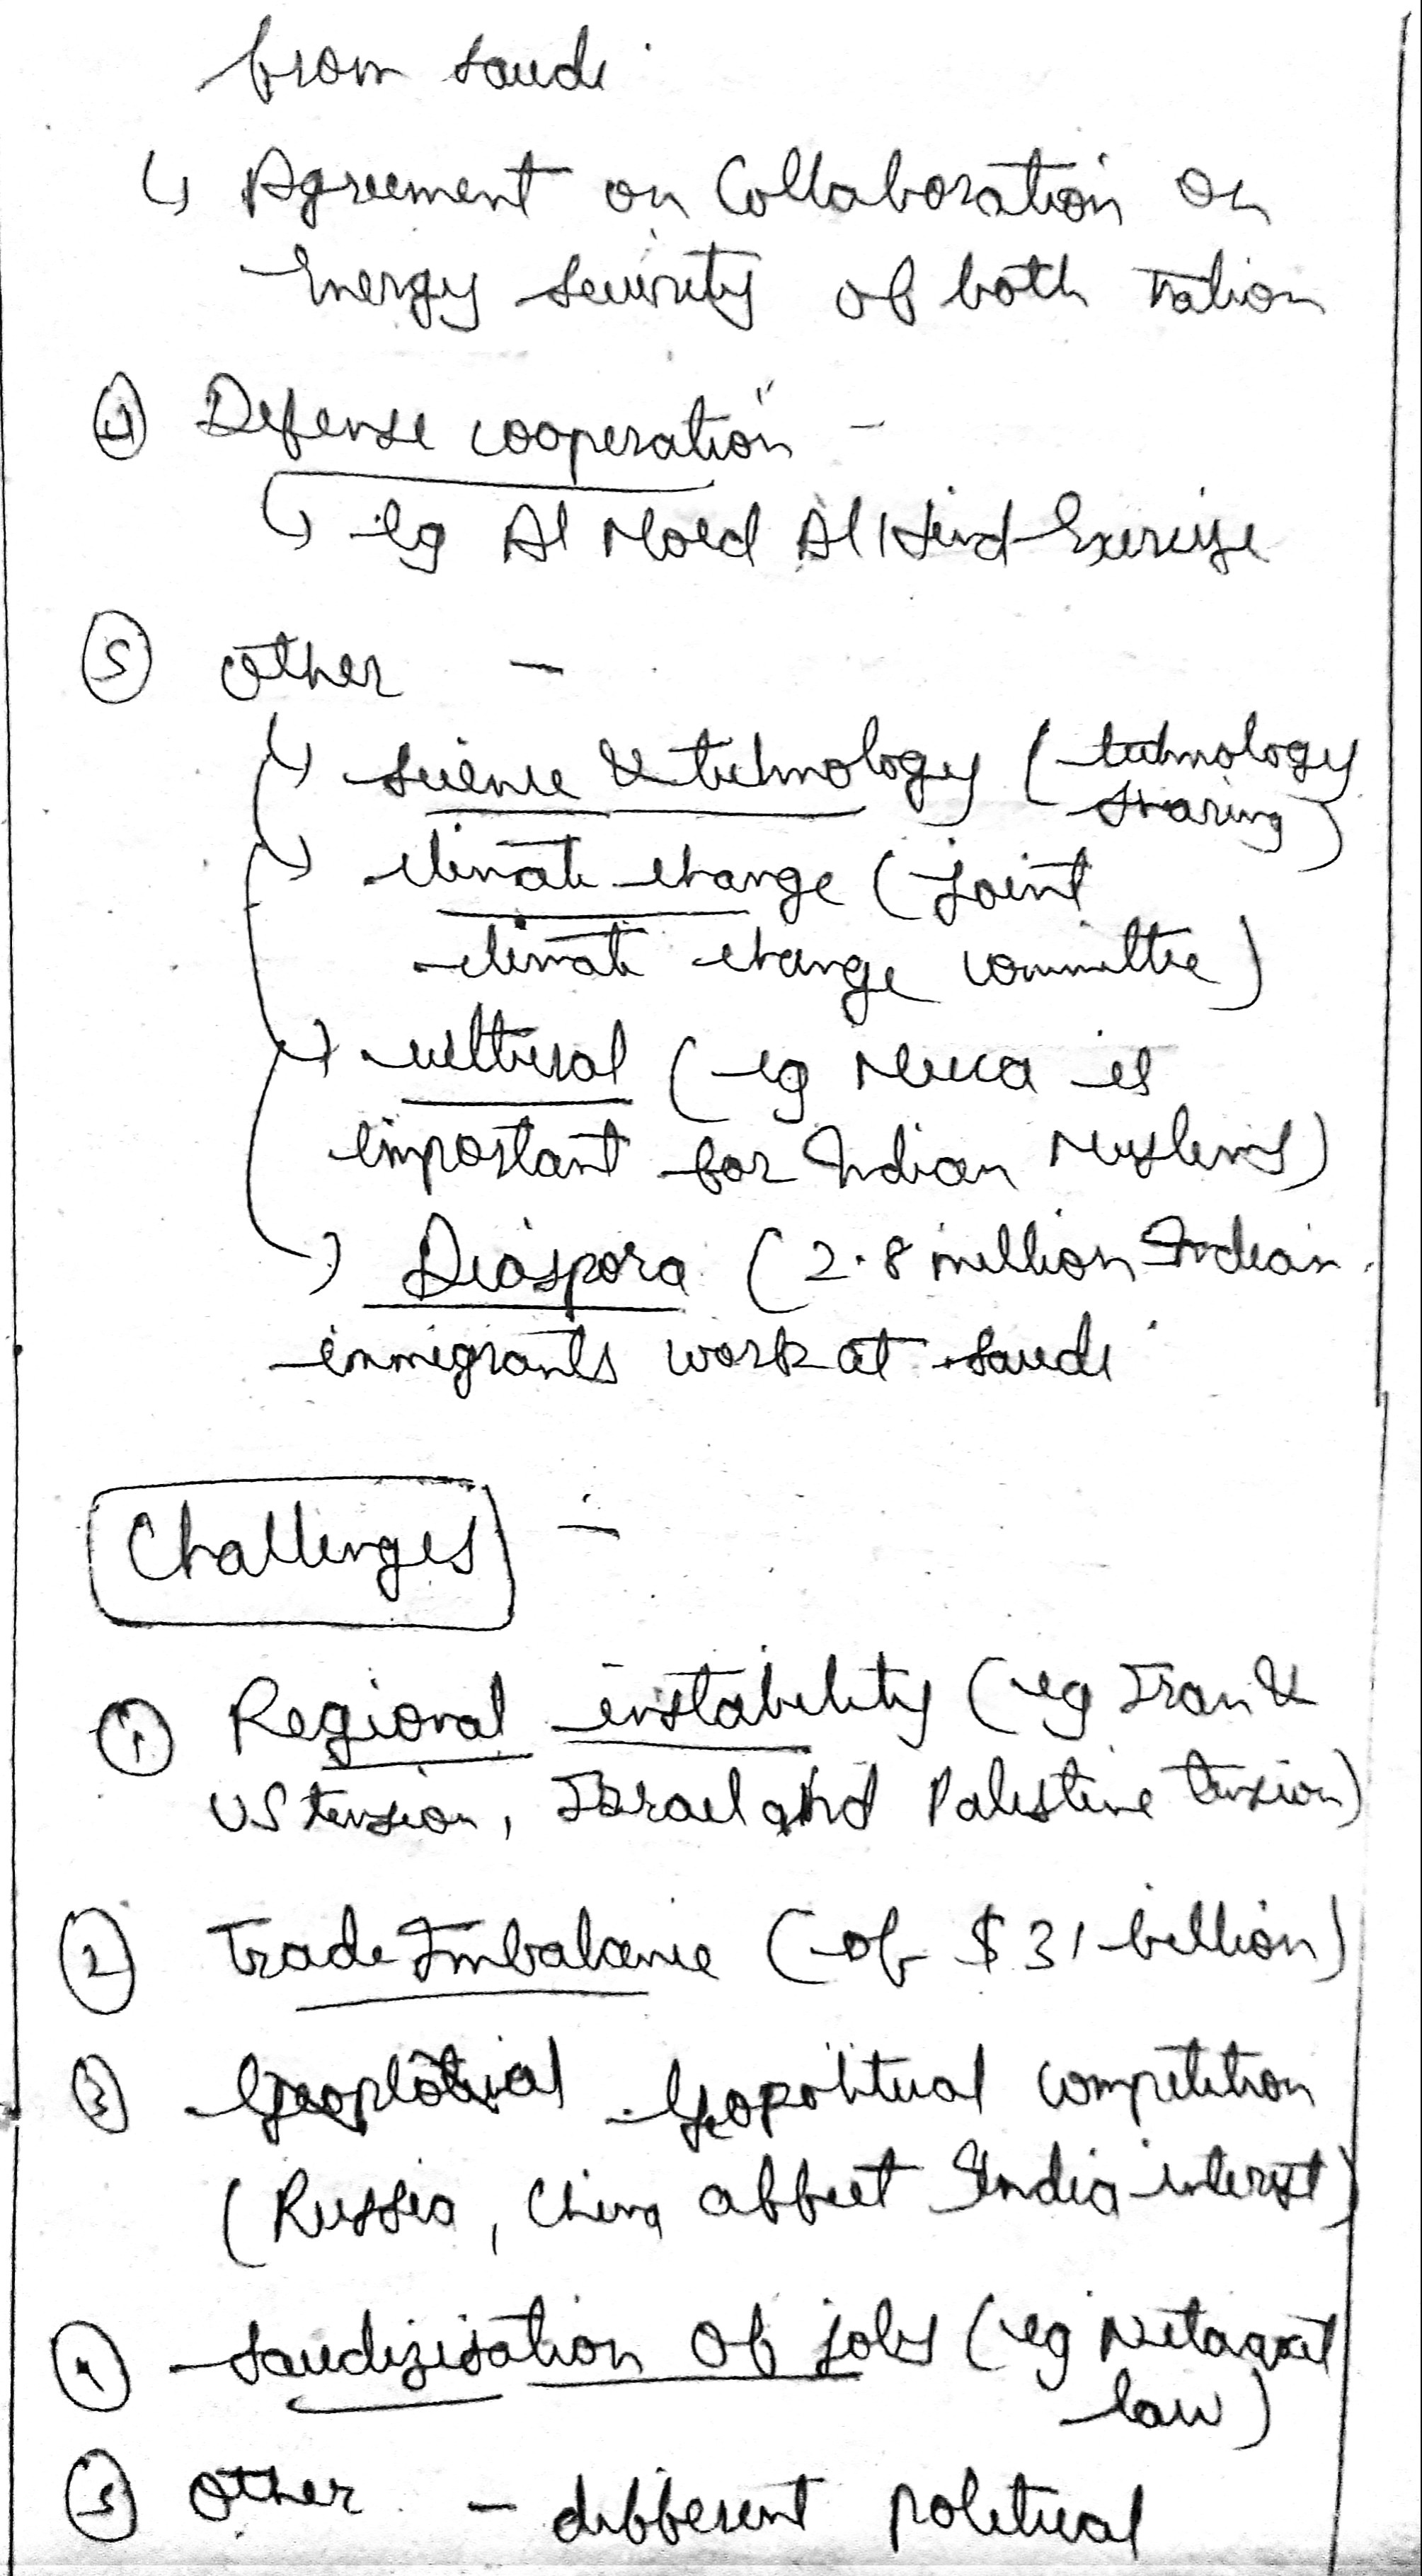 from Saudi
↳ Agreement on Collaboration on
Energy Security of both nation
④ Defense cooperation -
↳ eg Al Moed Al Hind Exercise
⑤ other -
↳ science & technology (technology
sharing)
↳ climate change (joint
climate change committee)
↳ cultural (eg Mecca is
important for Indian Muslims)
↳ Diaspora (2.8 million Indian
immigrants work at Saudi
Challenges -
① Regional instability (eg Iran &
US tension, Israel and Palestine tension)
② Trade Imbalance (of $31 billion)
③ Geopolitical competition
(Russia, China affect India interest)
④ Saudizisation of jobs (eg Nitaqat
law)
⑤ other - different political